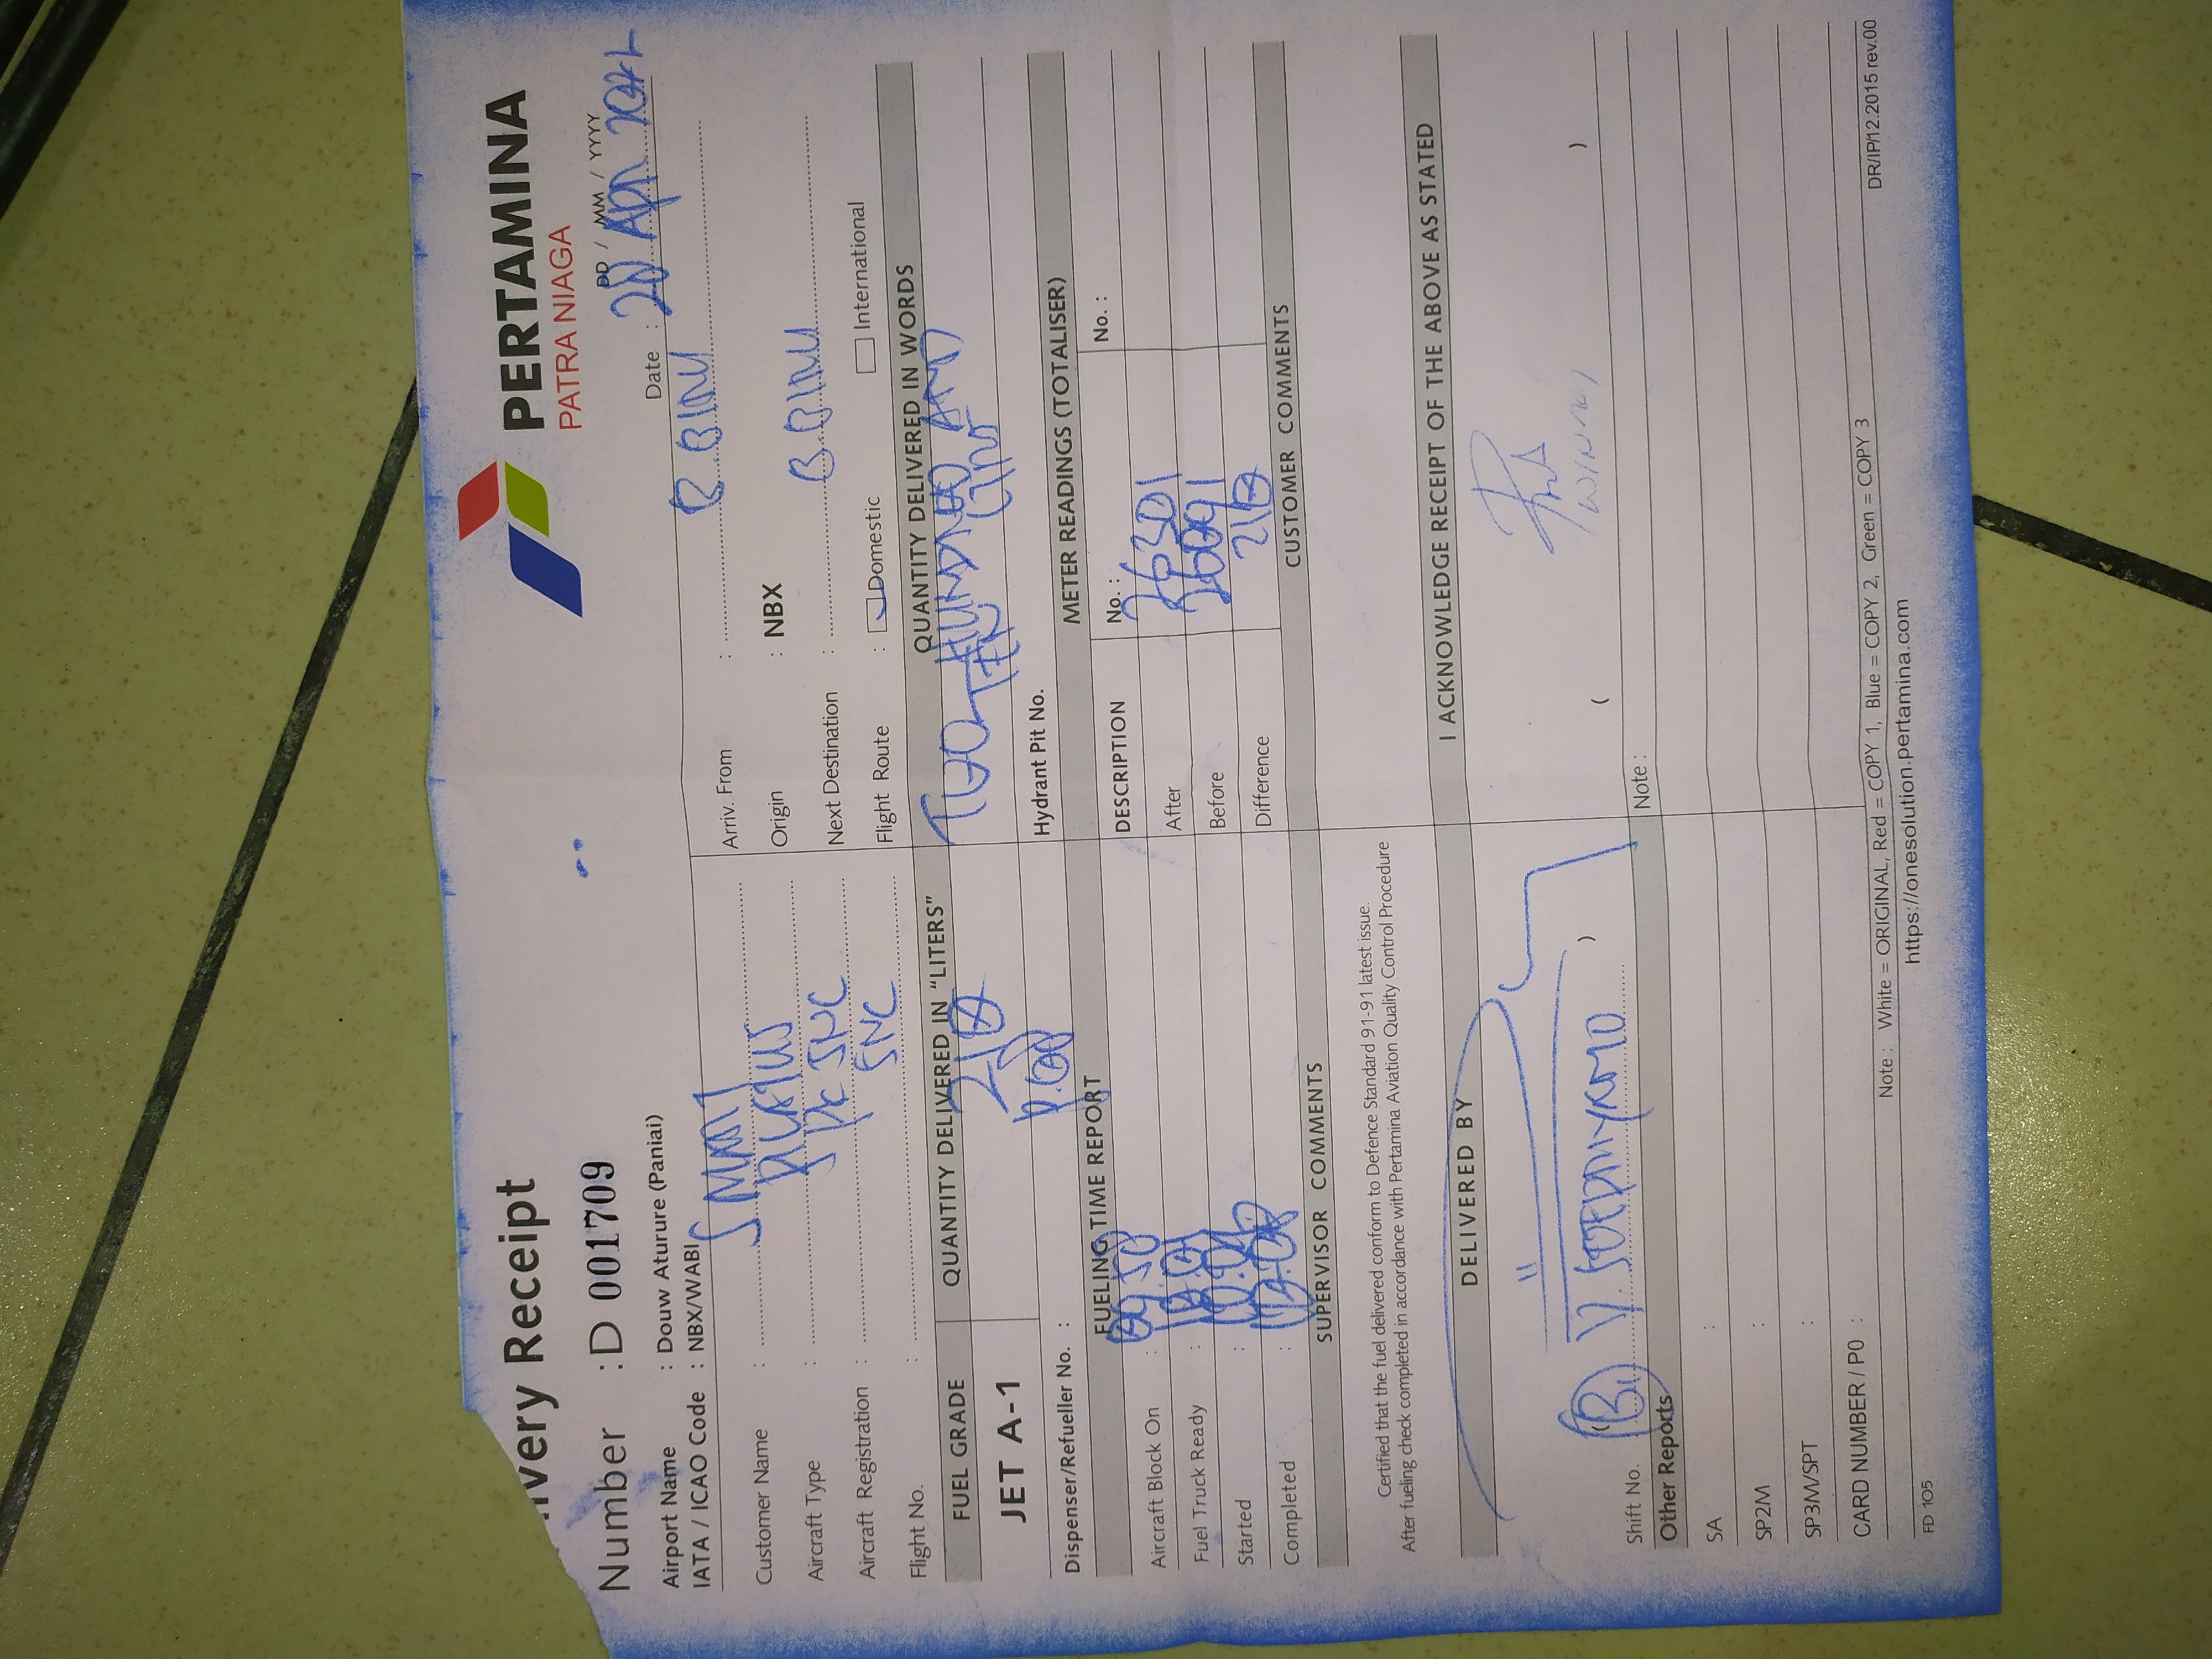 ivery Receipt
PERTAMINA
PATRA NIAGA
Number : D 001709
DD / MM / YYYY
Date : 20 Apr
Airport Name : Douw Aturure (Paniai)
IATA / ICAO Code : NBX/WABI
Customer Name : SMART
Aircraft Type : PILATUS
Aircraft Registration : PK SNC
Flight No. : SNC
Arriv. From : B.BINU
Origin : NBX
Next Destination : B.BINU
Flight Route : Domestic International
FUEL GRADE
QUANTITY DELIVERED IN "LITERS"
QUANTITY DELIVERED IN WORDS
JET A-1
210
TWO HUNDRED AND
TEN
Dispenser/Refueller No. :
Hydrant Pit No.
FUELING TIME REPORT
METER READINGS (TOTALISER)
DESCRIPTION No. : No. :
Aircraft Block On : 09.50
Fuel Truck Ready :
Started :
Completed :
After 36301
Before 36091
Difference 210
SUPERVISOR COMMENTS
CUSTOMER COMMENTS
Certified that the fuel delivered conform to Defence Standard 91-91 latest issue.
After fueling check completed in accordance with Pertamina Aviation Quality Control Procedure
DELIVERED BY
I ACKNOWLEDGE RECEIPT OF THE ABOVE AS STATED
( )
( )
Shift No.
Note :
Other Reports
SA :
SP2M :
SP3M/SPT :
CARD NUMBER / P0 :
Note : White = ORIGINAL, Red = COPY 1, Blue = COPY 2, Green = COPY 3
DR/IP/12.2015 rev.00
FD 105
https://onesolution.pertamina.com